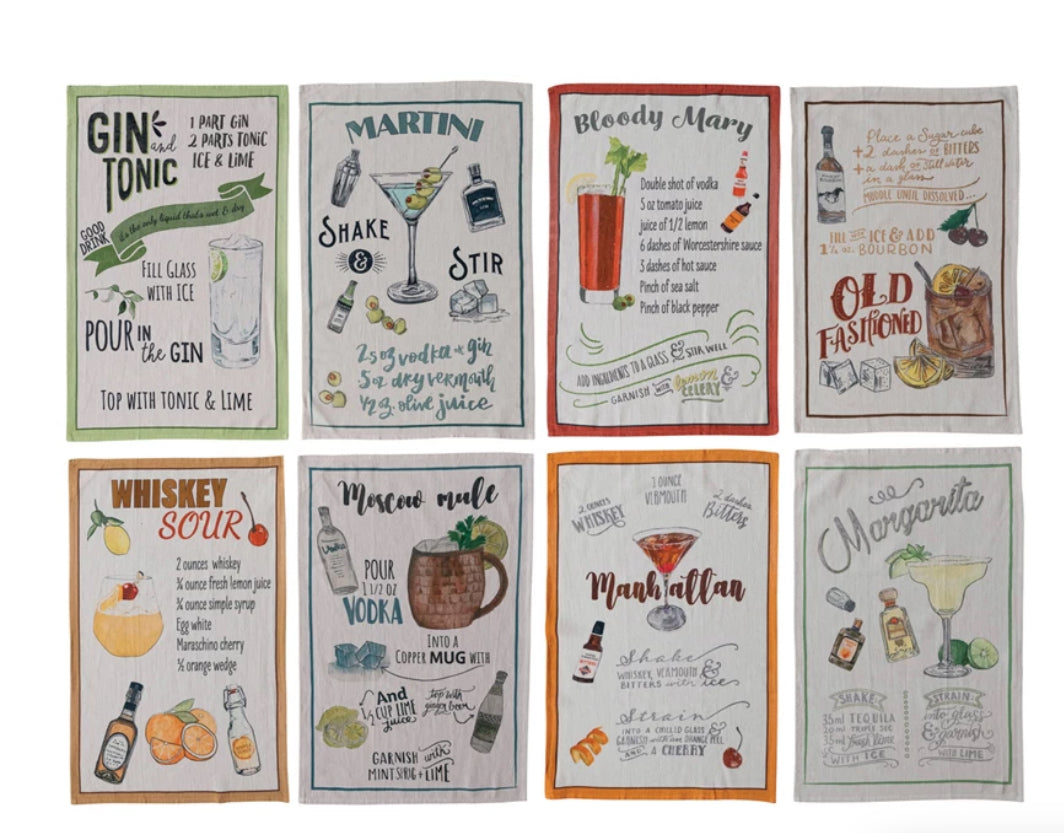 GIN and TONIC
1 PART GIN
2 PARTS TONIC
ICE & LIME
GOOD DRINK
it's the only liquid that's wet & dry
FILL GLASS
WITH ICE
POUR IN
the GIN
TOP WITH TONIC & LIME
MARTINI
SHAKE
&
STIR
2.5 oz vodka or gin
.5 oz dry vermouth
1/2 oz. olive juice
Bloody Mary
Double shot of vodka
5 oz tomato juice
juice of 1/2 lemon
6 dashes of Worcestershire sauce
3 dashes of hot sauce
Pinch of sea salt
Pinch of black pepper
ADD INGREDIENTS TO A GLASS & STIR WELL
GARNISH WITH lemon &
CELERY
Place a Sugar cube
+2 dashes OF BITTERS
+a dash OF still water
in a glass
MUDDLE UNTIL DISSOLVED...
FILL WITH ICE & ADD
BOURBON
OLD
FASHIONED
WHISKEY
SOUR
2 ounces whiskey
¾ ounce fresh lemon juice
¾ ounce simple syrup
Egg white
Maraschino cherry
½ orange wedge
Moscow mule
Vodka
POUR
1 1/2 OZ
VODKA
INTO A
COPPER MUG WITH
And
CUP LIME
juice
top with
ginger beer
GARNISH with
MINT SPRIG + LIME
2 OUNCES
WHISKEY
1 OUNCE
VERMOUTH
2 dashes
Bitters
Manhattan
BITTERS
Shake
WHISKEY, VERMOUTH &
BITTERS with ice
Strain
INTO A CHILLED GLASS &
GARNISH with one ORANGE PEEL
AND A CHERRY
Margarita
SHAKE:
35ml TEQUILA
20ml TRIPLE SEC
35ml fresh lime
WITH ICE
STRAIN:
into glass
& garnish
WITH LIME